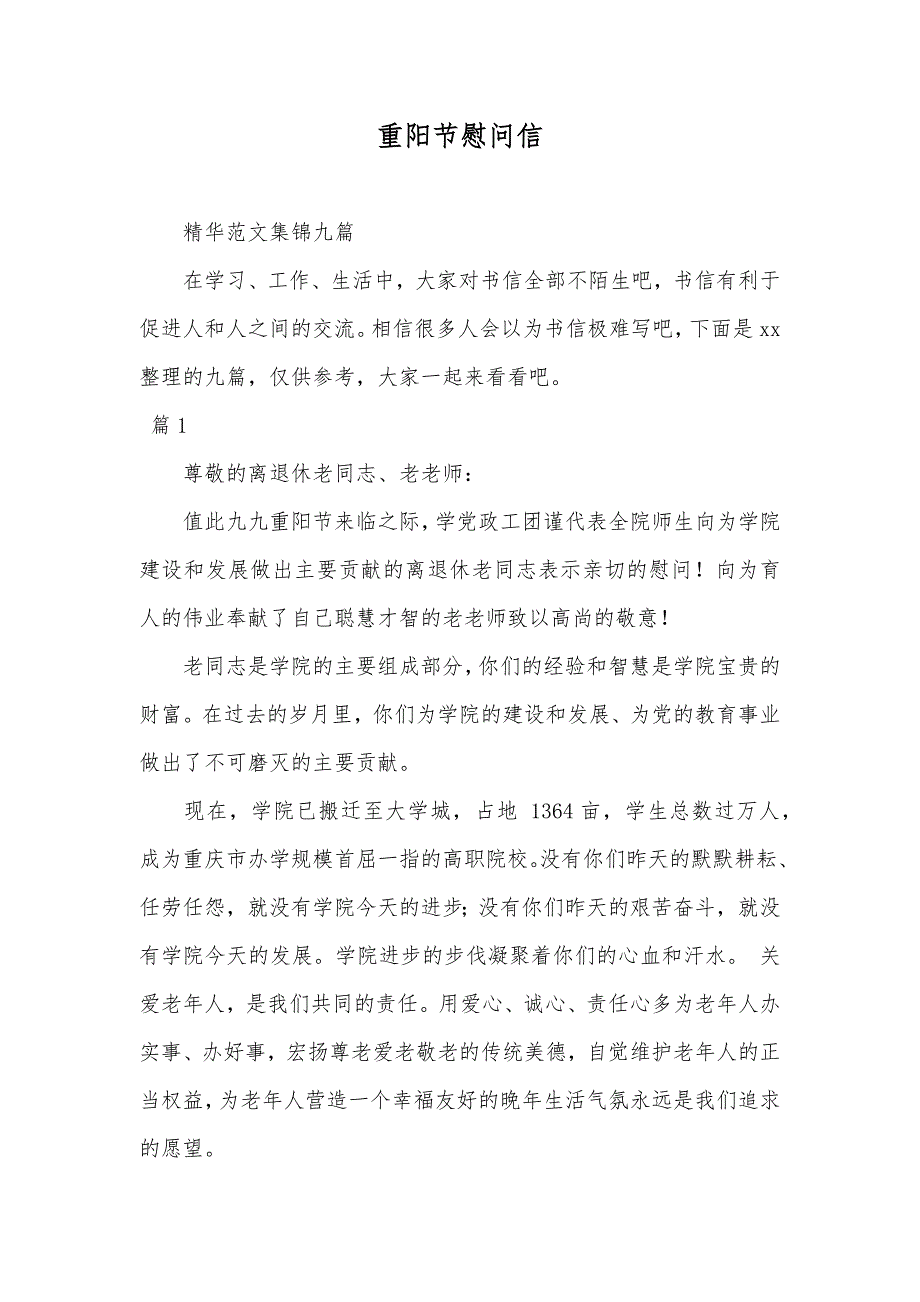 重阳节慰问信
精华范文集锦九篇
在学习、工作、生活中，大家对书信全部不陌生吧，书信有利于
促进人和人之间的交流。相信很多人会以为书信极难写吧，下面是 xx
整理的九篇，仅供参考，大家一起来看看吧。
篇 1
尊敬的离退休老同志、老老师：
值此九九重阳节来临之际，学党政工团谨代表全院师生向为学院
建设和发展做出主要贡献的离退休老同志表示亲切的慰问！向为育
人的伟业奉献了自己聪慧才智的老老师致以高尚的敬意！
老同志是学院的主要组成部分，你们的经验和智慧是学院宝贵的
财富。在过去的岁月里，你们为学院的建设和发展、为党的教育事业
做出了不可磨灭的主要贡献。
现在，学院已搬迁至大学城，占地 1364 亩，学生总数过万人，
成为重庆市办学规模首屈一指的高职院校。没有你们昨天的默默耕耘、
任劳任怨，就没有学院今天的进步；没有你们昨天的艰苦奋斗，就没
有学院今天的发展。学院进步的步伐凝聚着你们的心血和汗水。 关
爱老年人，是我们共同的责任。用爱心、诚心、责任心多为老年人办
实事、办好事，宏扬尊老爱老敬老的传统美德，自觉维护老年人的正
当权益，为老年人营造一个幸福友好的晚年生活气氛永远是我们追求
的愿望。